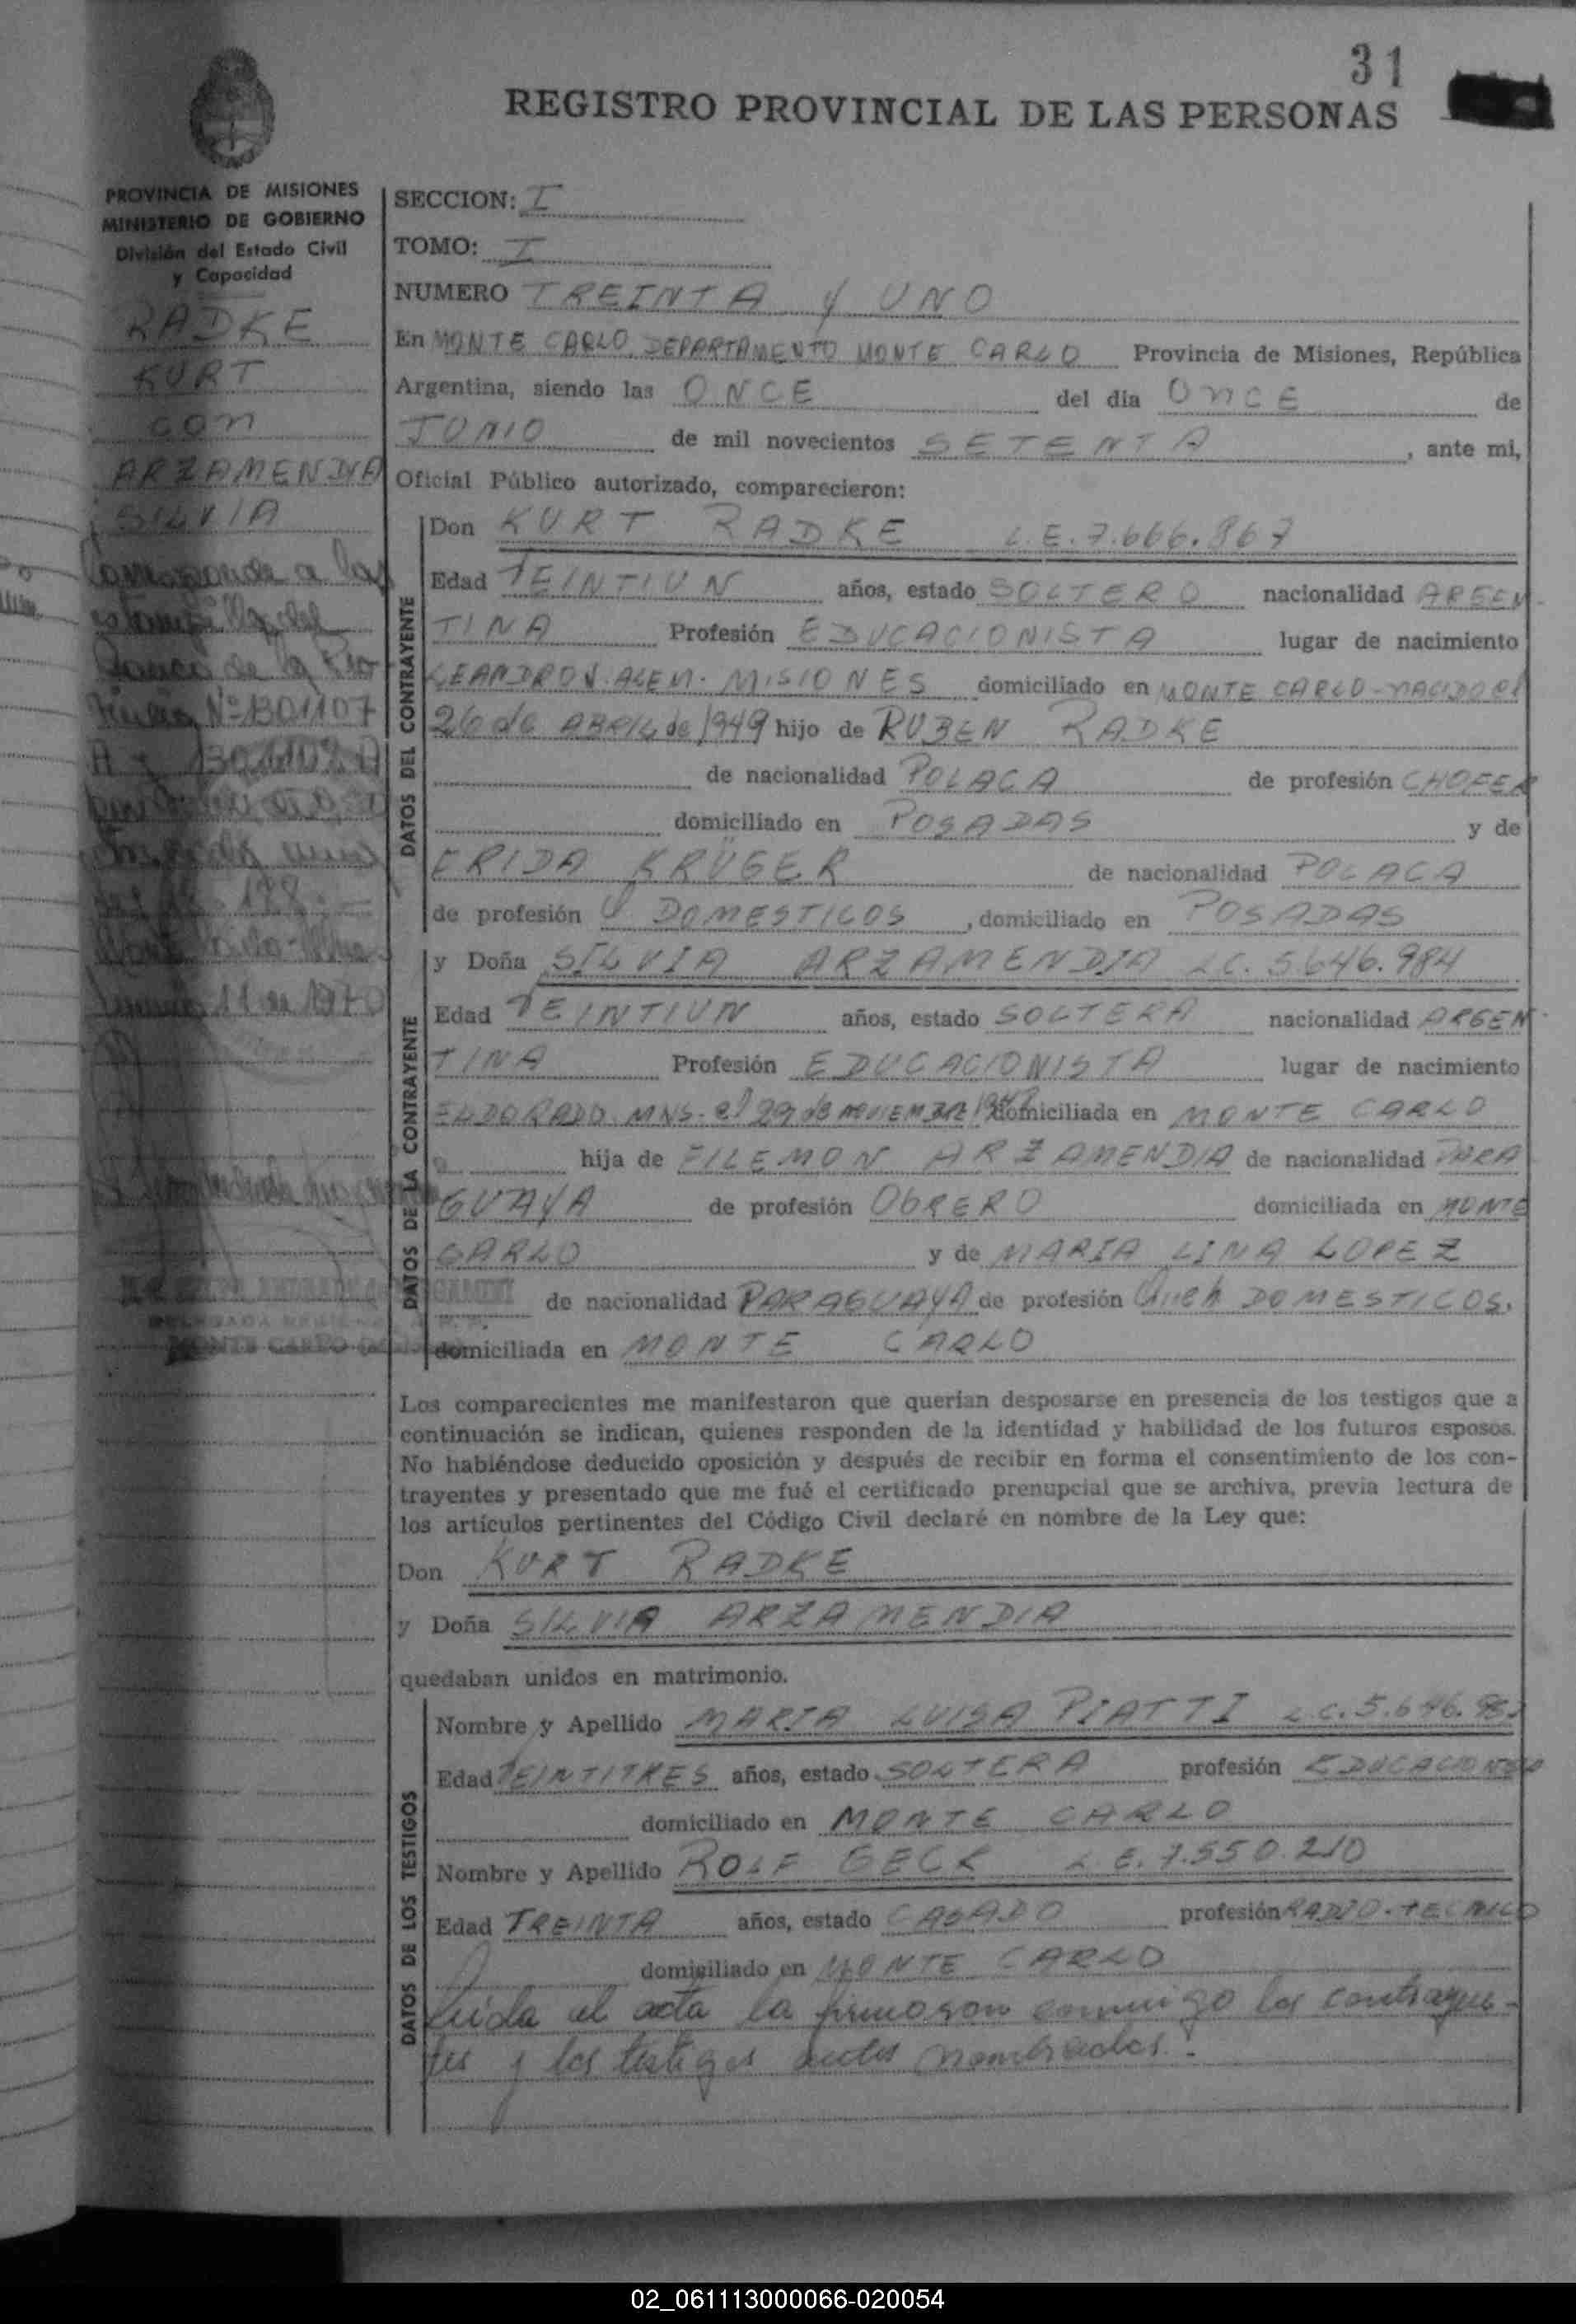 31
REGISTRO PROVINCIAL DE LAS PERSONAS
PROVINCIA DE MISIONES
MINISTERIO DE GOBIERNO
División del Estado Civil
y Capacidad
RADKE
KURT
con
ARZAMENDIA
SILVIA
Corresponde a las
Banco de la Pro
Nº 1301107
Junio 11 de 1970
SECCION: I
TOMO: I
NUMERO TREINTA y UNO
En MONTE CARLO DEPARTAMENTO MONTE CARLO Provincia de Misiones, República
Argentina, siendo las ONCE del día ONCE de
JUNIO de mil novecientos SETENTA, ante mi,
Oficial Público autorizado, comparecieron:
DATOS DEL CONTRAYENTE
Don KURT RADKE L.E. 7.666.867
Edad VEINTIUN años, estado SOLTERO nacionalidad ARGEN-
TINA Profesión EDUCACIONISTA lugar de nacimiento
LEANDRO N. ALEM. MISIONES domiciliado en MONTE CARLO-NACIDO el
26 de ABRIL de 1949 hijo de RUBEN RADKE
de nacionalidad POLACA de profesión CHOFER
domiciliado en POSADAS y de
ERIDA KRÜGER de nacionalidad POLACA
de profesión Q DOMESTICOS, domiciliado en POSADAS
DATOS DE LA CONTRAYENTE
y Doña SILVIA ARZAMENDIA LC. 5646.984
Edad VEINTIUN años, estado SOLTERA nacionalidad ARGEN-
TINA Profesión EDUCACIONISTA lugar de nacimiento
ELDORADO. MNS. el 29 de NOVIEMBRE domiciliada en MONTE CARLO
hija de FILEMON ARZAMENDIA de nacionalidad PARA
GUAYA de profesión ObRERO domiciliada en MONTE
CARLO y de MARIA LINA LOPEZ
de nacionalidad PARAGUAYA de profesión Queh DOMESTICOS.
domiciliada en MONTE CARLO
Los comparecientes me manifestaron que querían desposarse en presencia de los testigos que a
continuación se indican, quienes responden de la identidad y habilidad de los futuros esposos.
No habiéndose deducido oposición y después de recibir en forma el consentimiento de los con-
trayentes y presentado que me fué el certificado prenupcial que se archiva, previa lectura de
los artículos pertinentes del Código Civil declaré en nombre de la Ley que:
Don KURT RADKE
y Doña SILVIA ARZAMENDIA
quedaban unidos en matrimonio.
DATOS DE LOS TESTIGOS
Nombre y Apellido MARIA LUISA PIATTI L.C. 5.646.
Edad VEINTITRES años, estado SOLTERA profesión
domiciliado en MONTE CARLO
Nombre y Apellido ROLF GECK L.E. 7.550.210
Edad TREINTA años, estado CASADO profesión RADIO-TECNICO
domiciliado en MONTE CARLO
Leida el acta la firmaron conmigo los contrayen-
tes y los testigos antes nombrados.
02_061113000066-020054